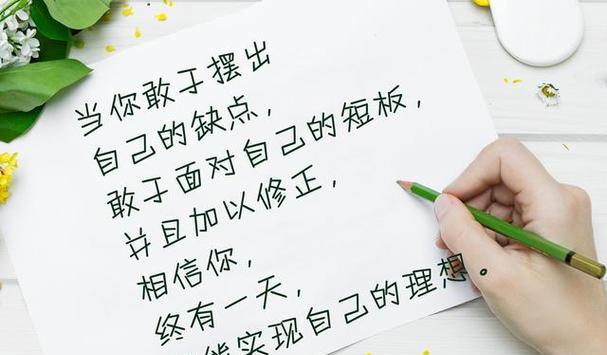 当你敢于摆出
自己的缺点，
敢于面对自己的短板，
并且加以修正，
相信你，
终有一天，
能实现自己的理想。